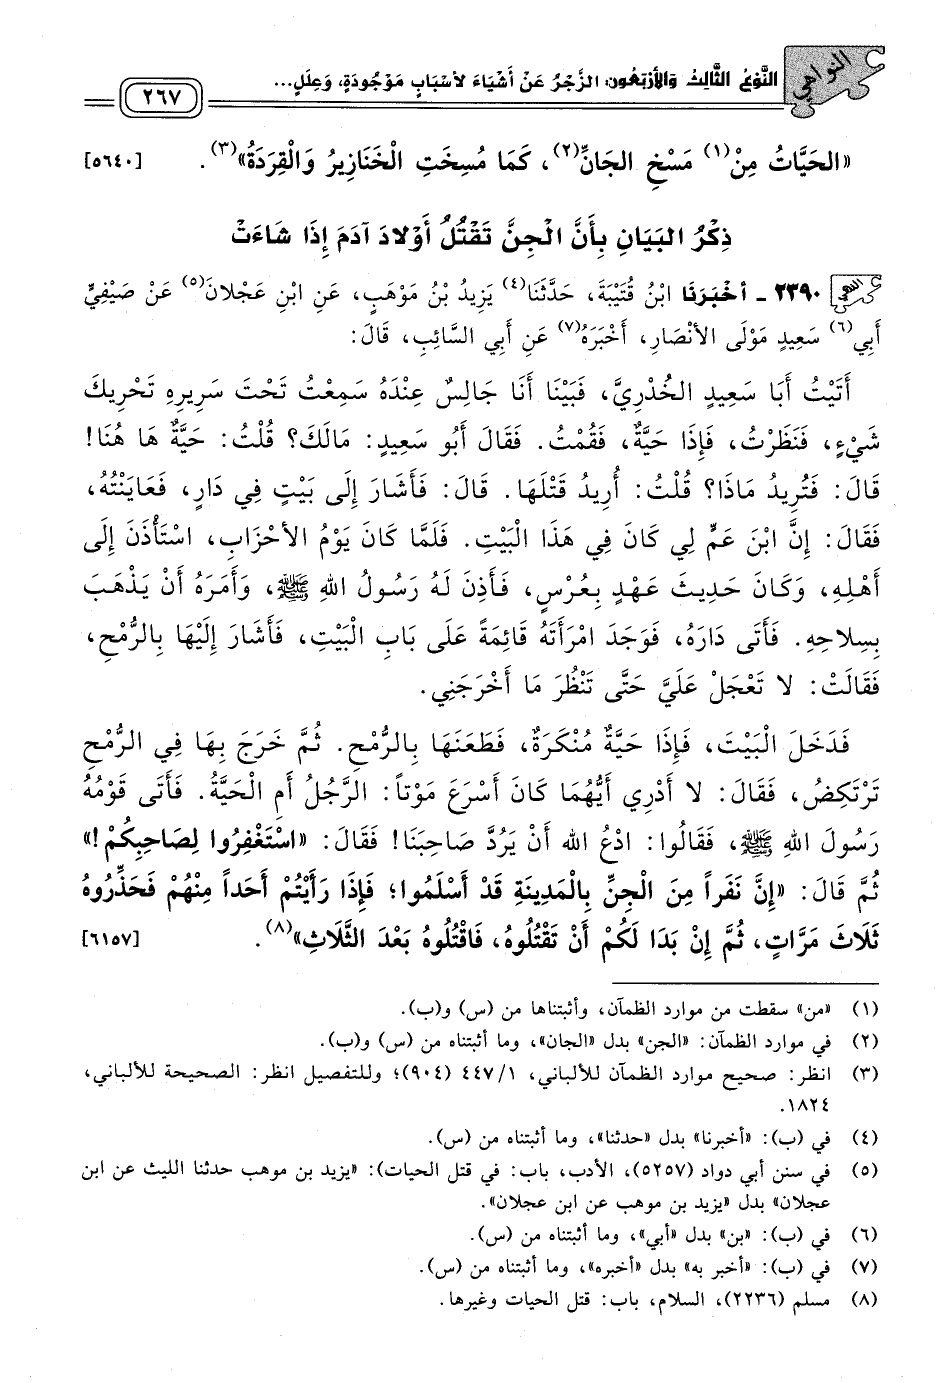 النواهي
النَّوْعُ الثَّالِثُ وَالأَرْبَعُون: الزَّجْرُ عَنْ أَشْيَاءَ لأَسْبَابٍ مَوْجُودَةٍ، وَعِلَلٍ...
٢٦٧
«الحَيَّاتُ مِنْ(١) مَسْخِ الجَانِّ(٢)، كَمَا مُسِخَتِ الْخَنَازِيرُ وَالْقِرَدَةُ»(٣). [٥٦٤٠]
ذِكْرُ البَيَانِ بِأَنَّ الْجِنَّ تَقْتُلُ أَوْلادَ آدَمَ إِذَا شَاءَتْ
٢٣٩٠ - أَخْبَرَنَا ابْنُ قُتَيْبَةَ، حَدَّثَنَا(٤) يَزِيدُ بْنُ مَوْهَبٍ، عَنِ ابْنِ عَجْلانَ(٥) عَنْ صَيْفِيٍّ
أَبِي(٦) سَعِيدٍ مَوْلَى الأنْصَارِ، أَخْبَرَهُ(٧) عَنِ أَبِي السَّائِبِ، قَالَ:
أَتَيْتُ أَبَا سَعِيدٍ الخُدْرِيَّ، فَبَيْنَا أَنَا جَالِسٌ عِنْدَهُ سَمِعْتُ تَحْتَ سَرِيرِهِ تَحْرِيكَ
شَيْءٍ، فَنَظَرْتُ، فَإِذَا حَيَّةٌ، فَقُمْتُ. فَقَالَ أَبُو سَعِيدٍ: مَالَكَ؟ قُلْتُ: حَيَّةٌ هَا هُنَا!
قَالَ: فَتُرِيدُ مَاذَا؟ قُلْتُ: أُرِيدُ قَتْلَهَا. قَالَ: فَأَشَارَ إِلَى بَيْتٍ فِي دَارٍ، فَعَايَنْتُهُ،
فَقَالَ: إِنَّ ابْنَ عَمٍّ لِي كَانَ فِي هَذَا الْبَيْتِ. فَلَمَّا كَانَ يَوْمُ الأحْزَابِ، اسْتَأْذَنَ إِلَى
أَهْلِهِ، وَكَانَ حَدِيثَ عَهْدٍ بِعُرْسٍ، فَأَذِنَ لَهُ رَسُولُ اللهِ ﷺ، وَأَمَرَهُ أَنْ يَذْهَبَ
بِسِلاحِهِ. فَأَتَى دَارَهُ، فَوَجَدَ امْرَأَتَهُ قَائِمَةً عَلَى بَابِ الْبَيْتِ، فَأَشَارَ إِلَيْهَا بِالرُّمْحِ،
فَقَالَتْ: لا تَعْجَلْ عَلَيَّ حَتَّى تَنْظُرَ مَا أَخْرَجَنِي.
فَدَخَلَ الْبَيْتَ، فَإِذَا حَيَّةٌ مُنْكَرَةٌ، فَطَعَنَهَا بِالرُّمْحِ. ثُمَّ خَرَجَ بِهَا فِي الرُّمْحِ
تَرْتَكِضُ، فَقَالَ: لا أَدْرِي أَيُّهُمَا كَانَ أَسْرَعَ مَوْتاً: الرَّجُلُ أَمِ الْحَيَّةُ. فَأَتَى قَوْمُهُ
رَسُولَ اللهِ ﷺ، فَقَالُوا: ادْعُ اللهَ أَنْ يَرُدَّ صَاحِبَنَا! فَقَالَ: «اسْتَغْفِرُوا لِصَاحِبِكُمْ!»
ثُمَّ قَالَ: «إِنَّ نَفَراً مِنَ الْجِنِّ بِالْمَدِينَةِ قَدْ أَسْلَمُوا؛ فَإِذَا رَأَيْتُمْ أَحَداً مِنْهُمْ فَحَذِّرُوهُ
ثَلاثَ مَرَّاتٍ، ثُمَّ إِنْ بَدَا لَكُمْ أَنْ تَقْتُلُوهُ، فَاقْتُلُوهُ بَعْدَ الثَّلَاثِ»(٨). [٦١٥٧]
(١) «من» سقطت من موارد الظمآن، وأثبتناها من (س) و(ب).
(٢) في موارد الظمآن: «الجن» بدل «الجان»، وما أثبتناه من (س) و(ب).
(٣) انظر: صحيح موارد الظمآن للألباني، ٤٤٧/١ (٩٠٤)؛ وللتفصيل انظر: الصحيحة للألباني،
١٨٢٤.
(٤) في (ب): «أخبرنا» بدل «حدثنا»، وما أثبتناه من (س).
(٥) في سنن أبي دواد (٥٢٥٧)، الأدب، باب: في قتل الحيات): «يزيد بن موهب حدثنا الليث عن ابن
عجلان» بدل «يزيد بن موهب عن ابن عجلان».
(٦) في (ب): «بن» بدل «أبي»، وما أثبتناه من (س).
(٧) في (ب): «أخبر به» بدل «أخبره»، وما أثبتناه من (س).
(٨) مسلم (٢٢٣٦)، السلام، باب: قتل الحيات وغيرها.